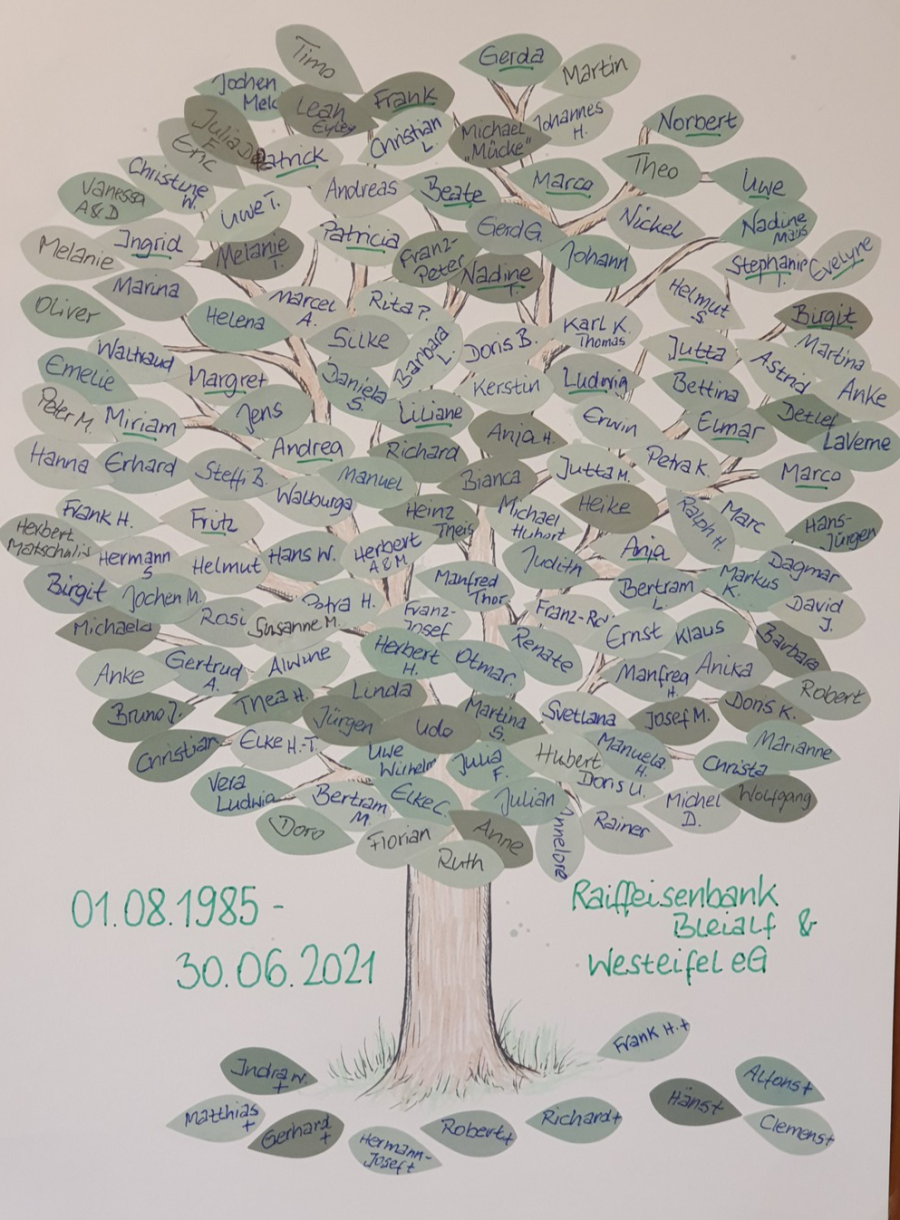 Timo
Gerda
Martin
Jochen
Melc
Leah
Eyley
Frank
Johannes
H.
Norbert
Julia D.
F.
Eric
Patrick
Christian
L.
Michael
"Mücke"
Theo
Uwe
Christine
W.
Vanessa
A&D
Uwe T.
Andreas
Beate
Marco
Nickel
Nadine
Melanie
Ingrid
Melanie
T.
Patricia
Franz-
Peter
Gerd G.
Nadine
T.
Johann
Stephanie
T.
Evelyne
Marina
Oliver
Helena
Marcel
A.
Rita P.
Silke
Barbara
L.
Doris B.
Karl K.
Thomas
Helmut
S
Birgit
Jutta
Martina
Astrid
Anke
Waltraud
Emelie
Margret
Daniela
S.
Kerstin
Ludwig
Bettina
Detlef
LaVerne
Peter M.
Miriam
Jens
Liliane
Anja H.
Erwin
Elmar
Andrea
Richard
Hanna
Erhard
Steffi B.
Manuel
Bianca
Jutta M.
Petra K.
Marco
Walburga
Frank H.
Fritz
Heinz
Theis
Michael
Hubert
Heike
Ralph H.
Marc
Hans-
Jürgen
Herbert
Matschulis
Hermann
S
Helmut
Hans W.
Herbert
A&M
Judith
Anja
Dagmar
Birgit
Jochen M.
Manfred
Thor.
Bertram
L.
Markus
K.
David
J.
Michaela
Rosi
Petra H.
Susanne M.
Franz-
Josef
Ernst
Klaus
Barbara
Anke
Gertrud
A.
Alwine
Herbert
H.
Otmar
Renate
Manfred
H.
Anika
Robert
Bruno J.
Thea H.
Linda
Jürgen
Udo
Martina
S.
Svetlana
Josef M.
Doris K.
Christian
Elke H.-T.
Uwe
Wilhelm
Julia
F.
Hubert
Manuela
H.
Doris U.
Christa
Marianne
Vera
Ludwig
Bertram
M.
Elke C.
Julian
Annelore
Michel
D.
Wolfgang
Doro
Florian
Anne
Ruth
Rainer
01.08.1985 -
30.06.2021
Raiffeisenbank
Bleialf &
Westeifel eG
Frank H.+
Indra W.
+
Alfons+
Matthias
+
Gerhard
+
Hermann-
Josef+
Robert+
Richard+
Häns+
Clemens+